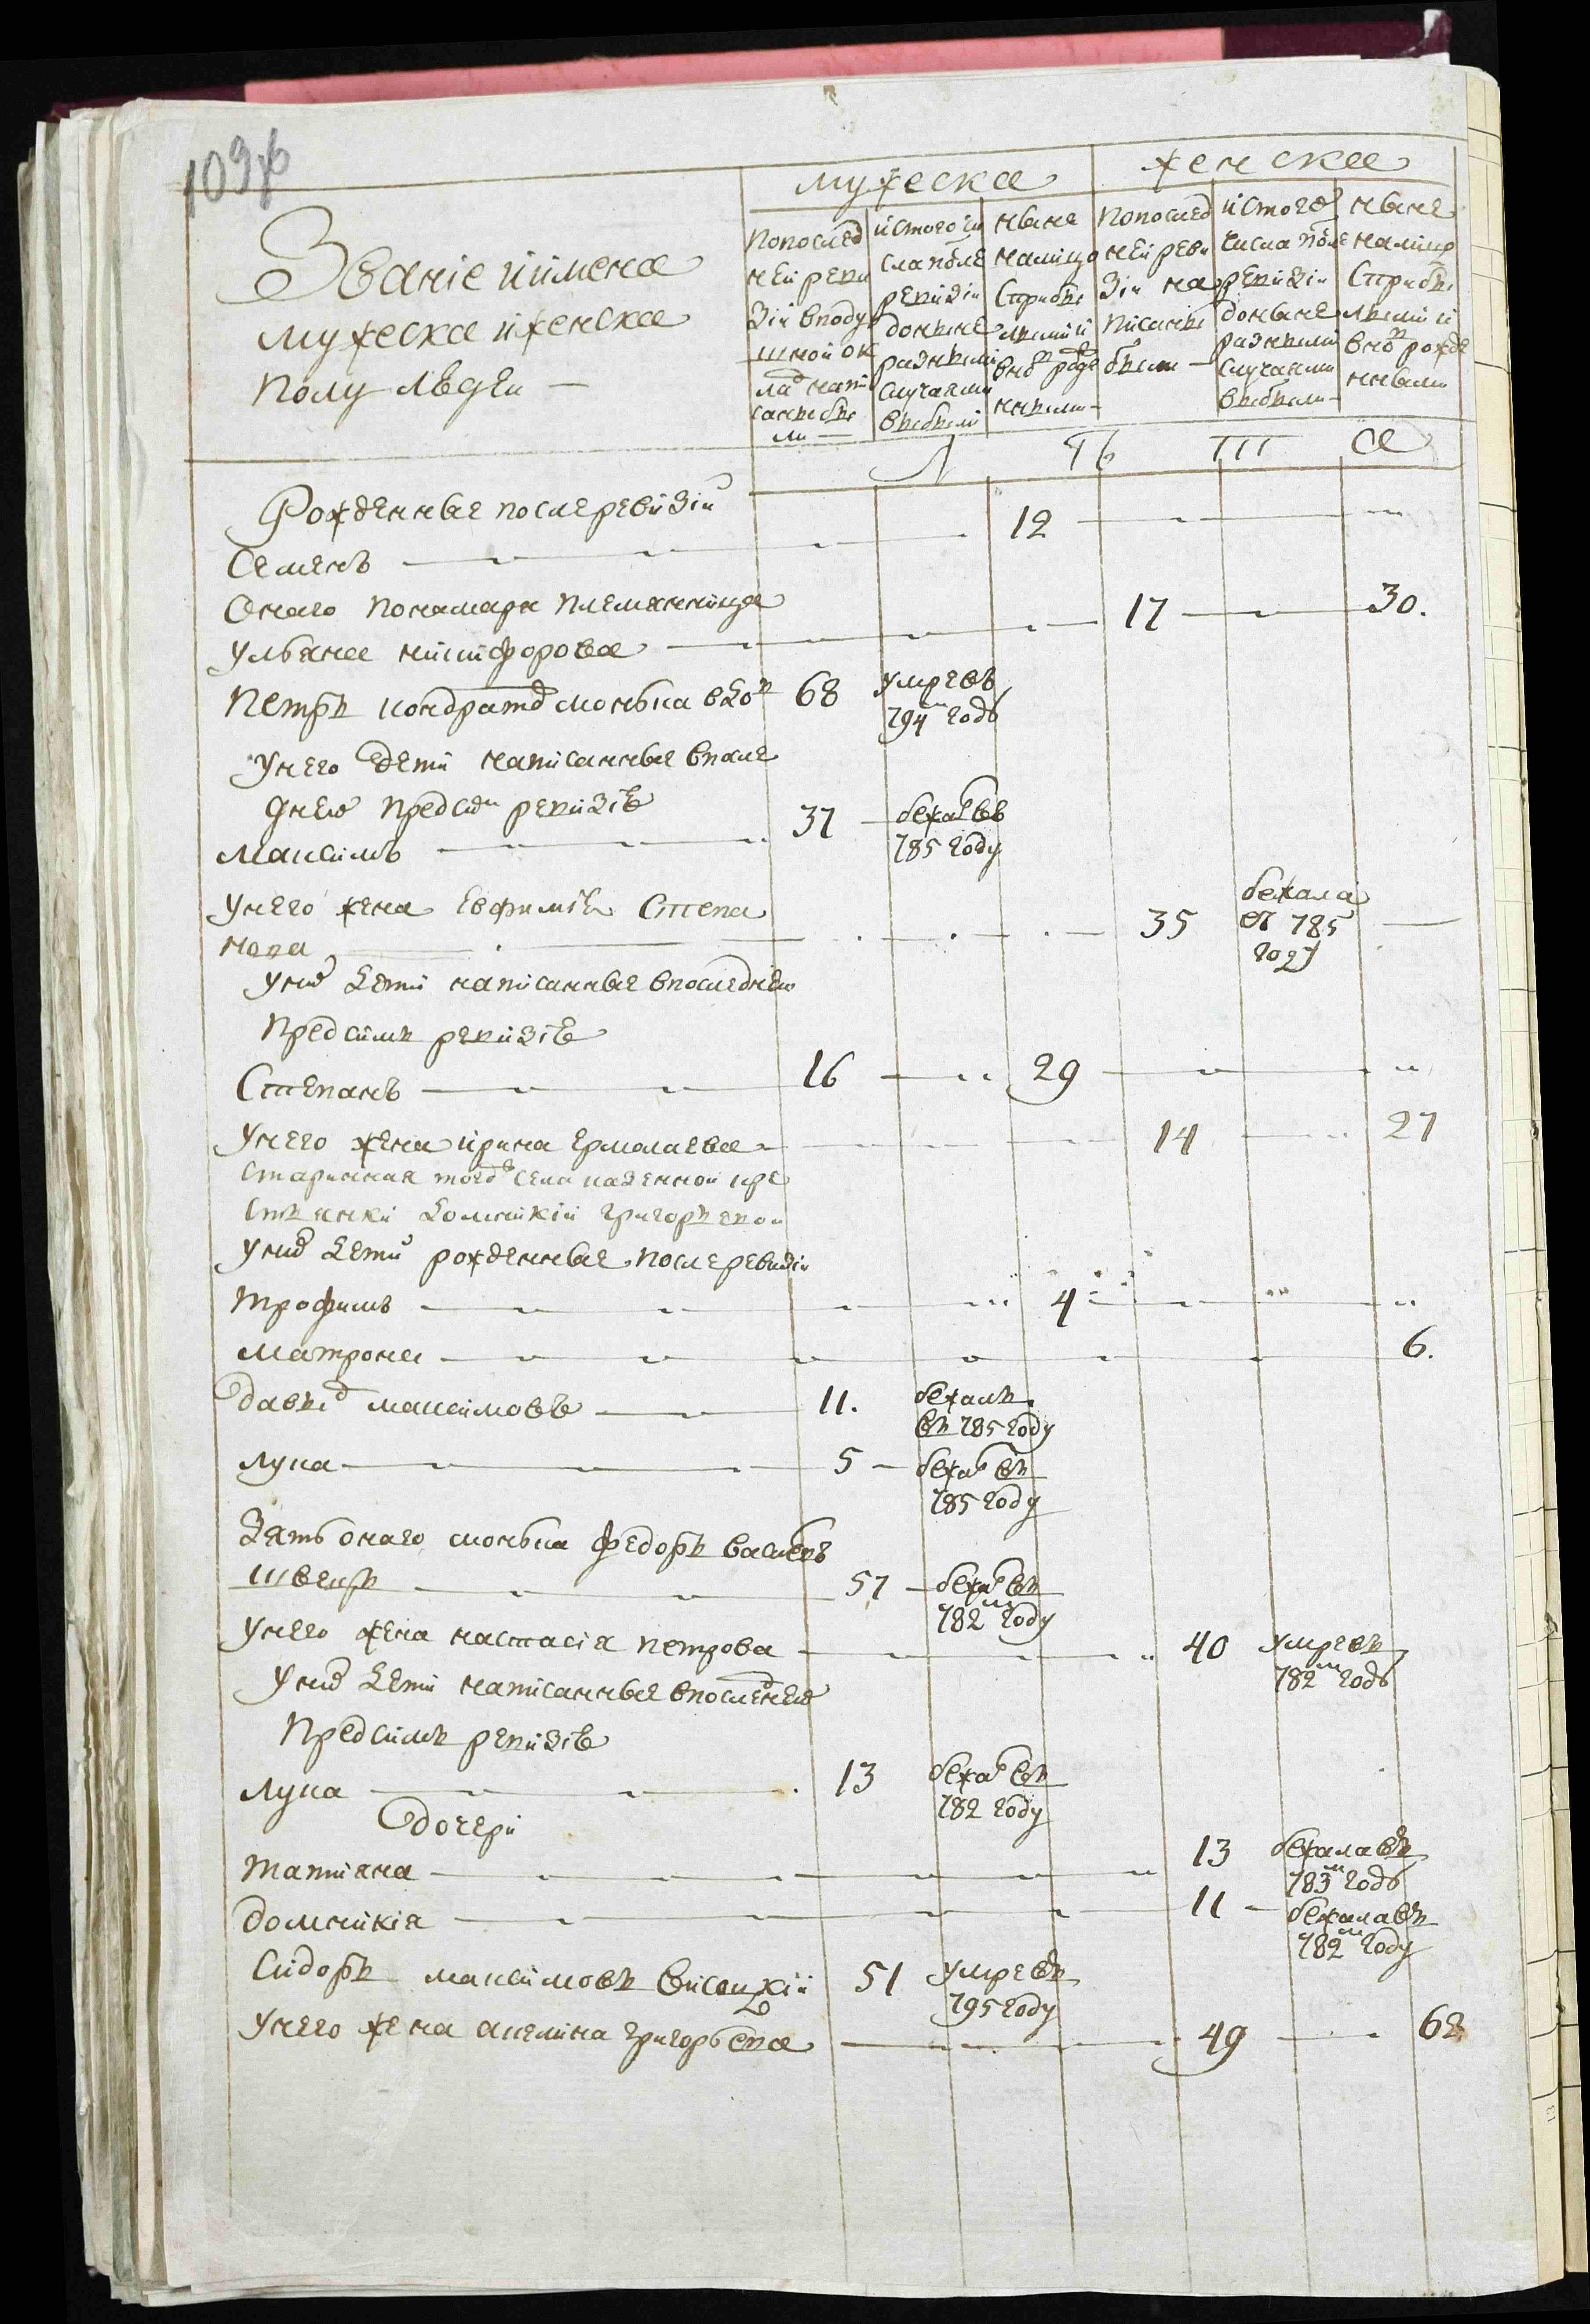 109
мужеска
женска
Званіе иимена
мужеска иженска
полу людеи —
Попослед
неи реви
зіи вподу
шнои ок
лад напи
саны бы
ли —
истого чи
сла после
ревизіи
доныне
разными
случаями
выбыли
ныне
налицо
Стрибы
лыми и
вновь рожде
ными —
Попослед
неи реви
зіи на
писаны
были —
истого
числа после
ревизіи
доныне
разными
случаями
выбыли —
ныне
налицо
Стрибы
лыми и
вновь рожде
нными
Л Ѣ Т А
Рожденные послеревизіи
Семенъ 12
Онаго понамаря племянница
Ульяна никифорова 17 30.
Петръ кондратов вдов 68 умре въ
794м годъ
Унего дети написанные впосле
днею пред сим ревизіе
Максимъ 37 бежал въ
785 году
Унего жена Евфимія Степа
нова 35 бежала
въ 785
году
Уних дети написанные впоследнею
Предсимъ ревизіе
Степанъ 16 29
Унего жена ирина Ермолаева 14 27
Старинная тогож села казенной кре
стьянки домникіи григорьевои
Уних дети рожденные послеревизіи
трофимъ 4
матрона 6.
Давыд максимовъ 11. бежалъ
въ 785 году
лука 5 бежал въ
785 году
Зять онаго федоръ васильевъ
швецъ 57 бежал въ
782м году
Унего жена настасія петрова 40 умре въ
782м годъ
Уних дети написанные впоследнею
Предсимъ ревизіе
лука 13 бежал въ
782 году
дочери
татияна 13 бежала въ
783м годъ
домникія 11 бежала въ
782м году
Сидоръ максимовъ висоцкіи 51 умре въ
795 году
Унего жена акелина григорьева 49 62